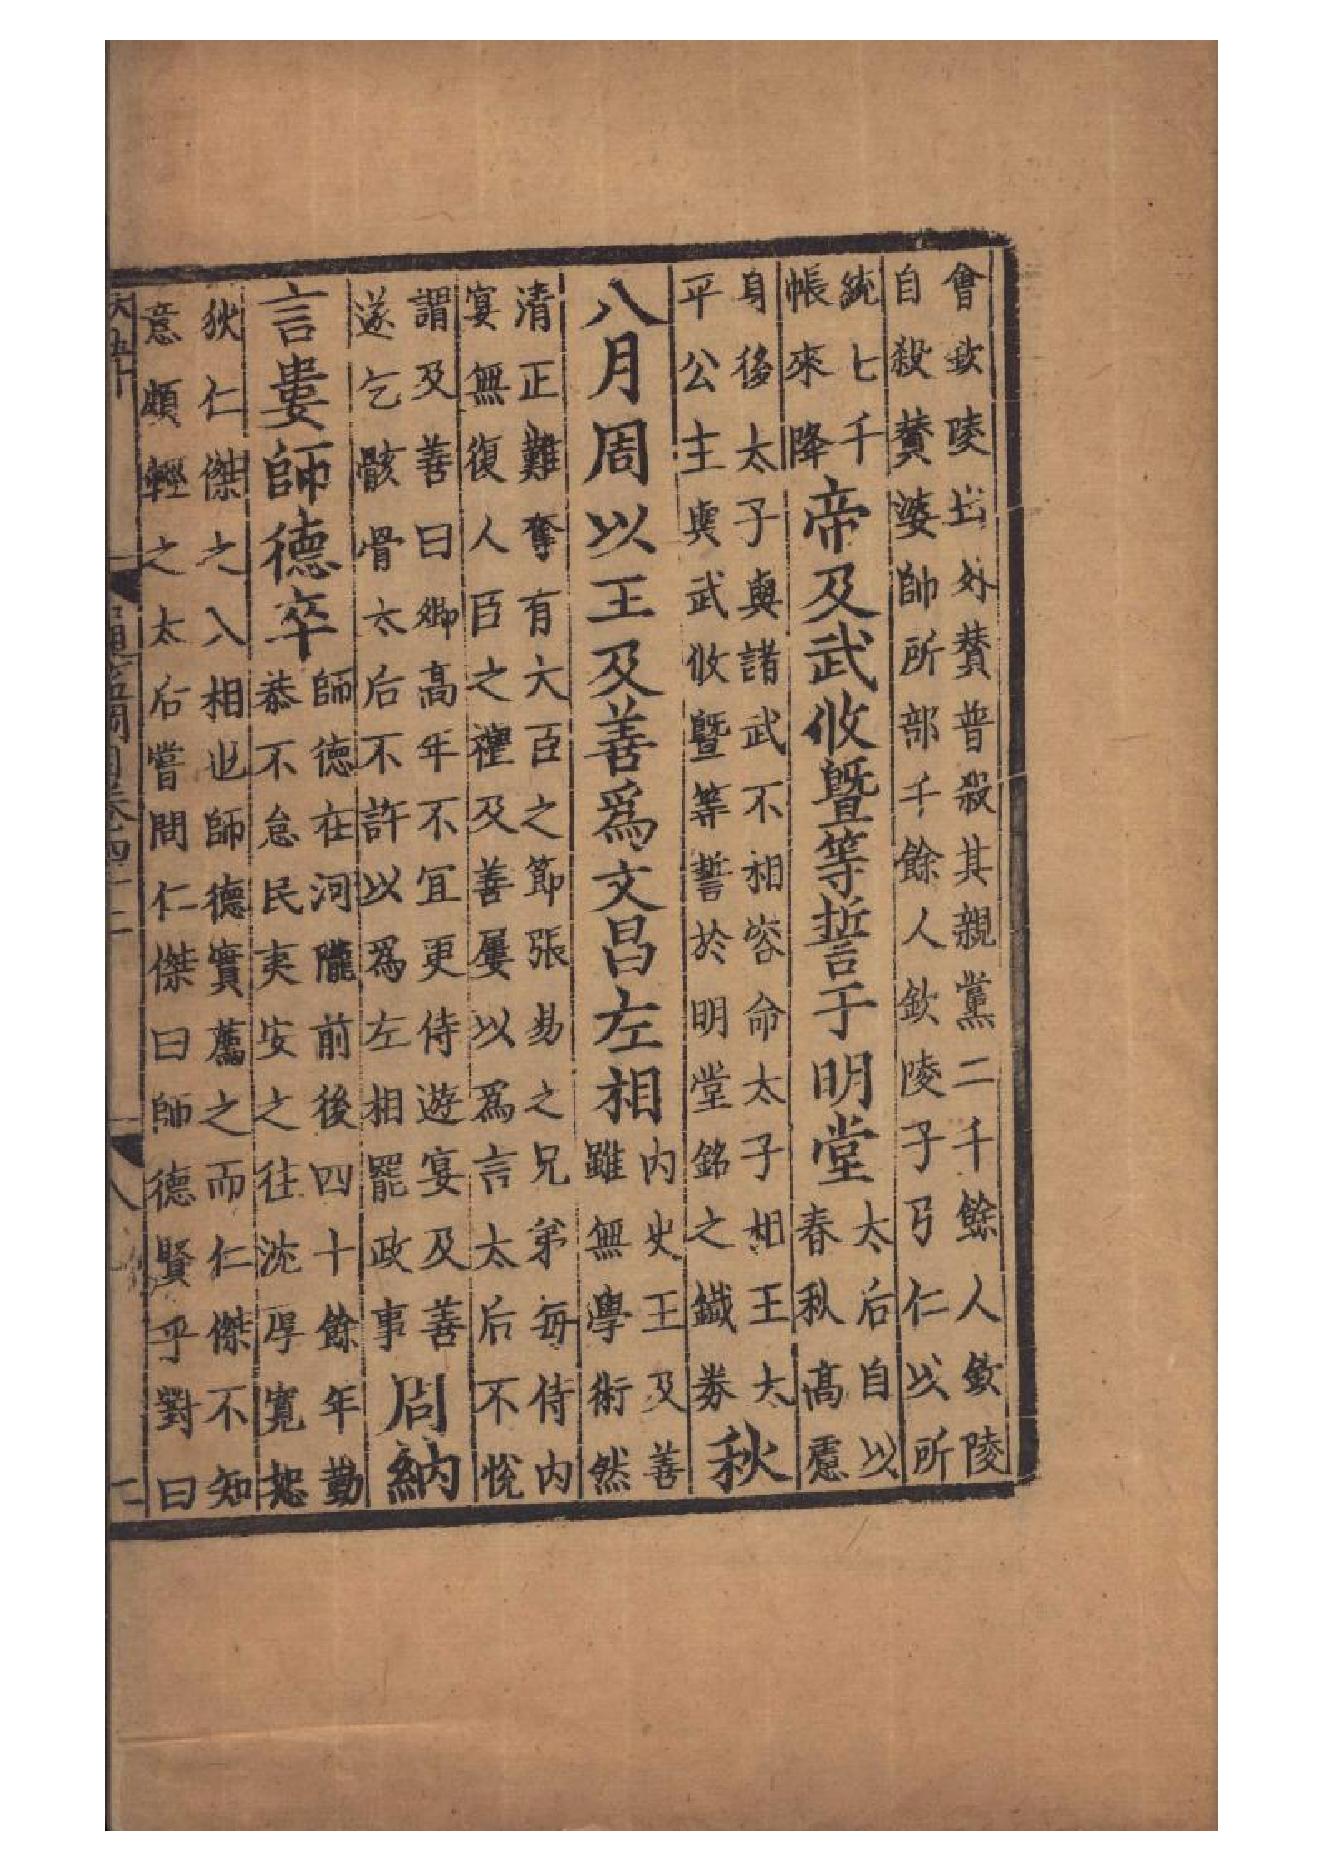 會欽陵出外贊普殺其親黨二千餘人欽陵
自殺贊婆帥所部千餘人欽陵子弓仁以所
統七千
帳來降
帝及武攸暨等誓于明堂
太后自以
春秋高慮
身後太子與諸武不相容命太子相王太
平公主與武攸暨等誓於明堂銘之鐵券
秋
八月周以王及善爲文昌左相
內史王及善
雖無學術然
清正難奪有大臣之節張易之兄弟每侍內
宴無復人臣之禮及善屢以爲言太后不悅
謂及善曰卿高年不宜更侍遊宴及善
遂乞骸骨太后不許以爲左相罷政事
周納
言婁師德卒
師德在河隴前後四十餘年勤
恭不怠民夷安之往沈厚寬恕
狄仁傑之入相也師德實薦之而仁傑不知
意頗輕之太后嘗問仁傑曰師德賢乎對曰